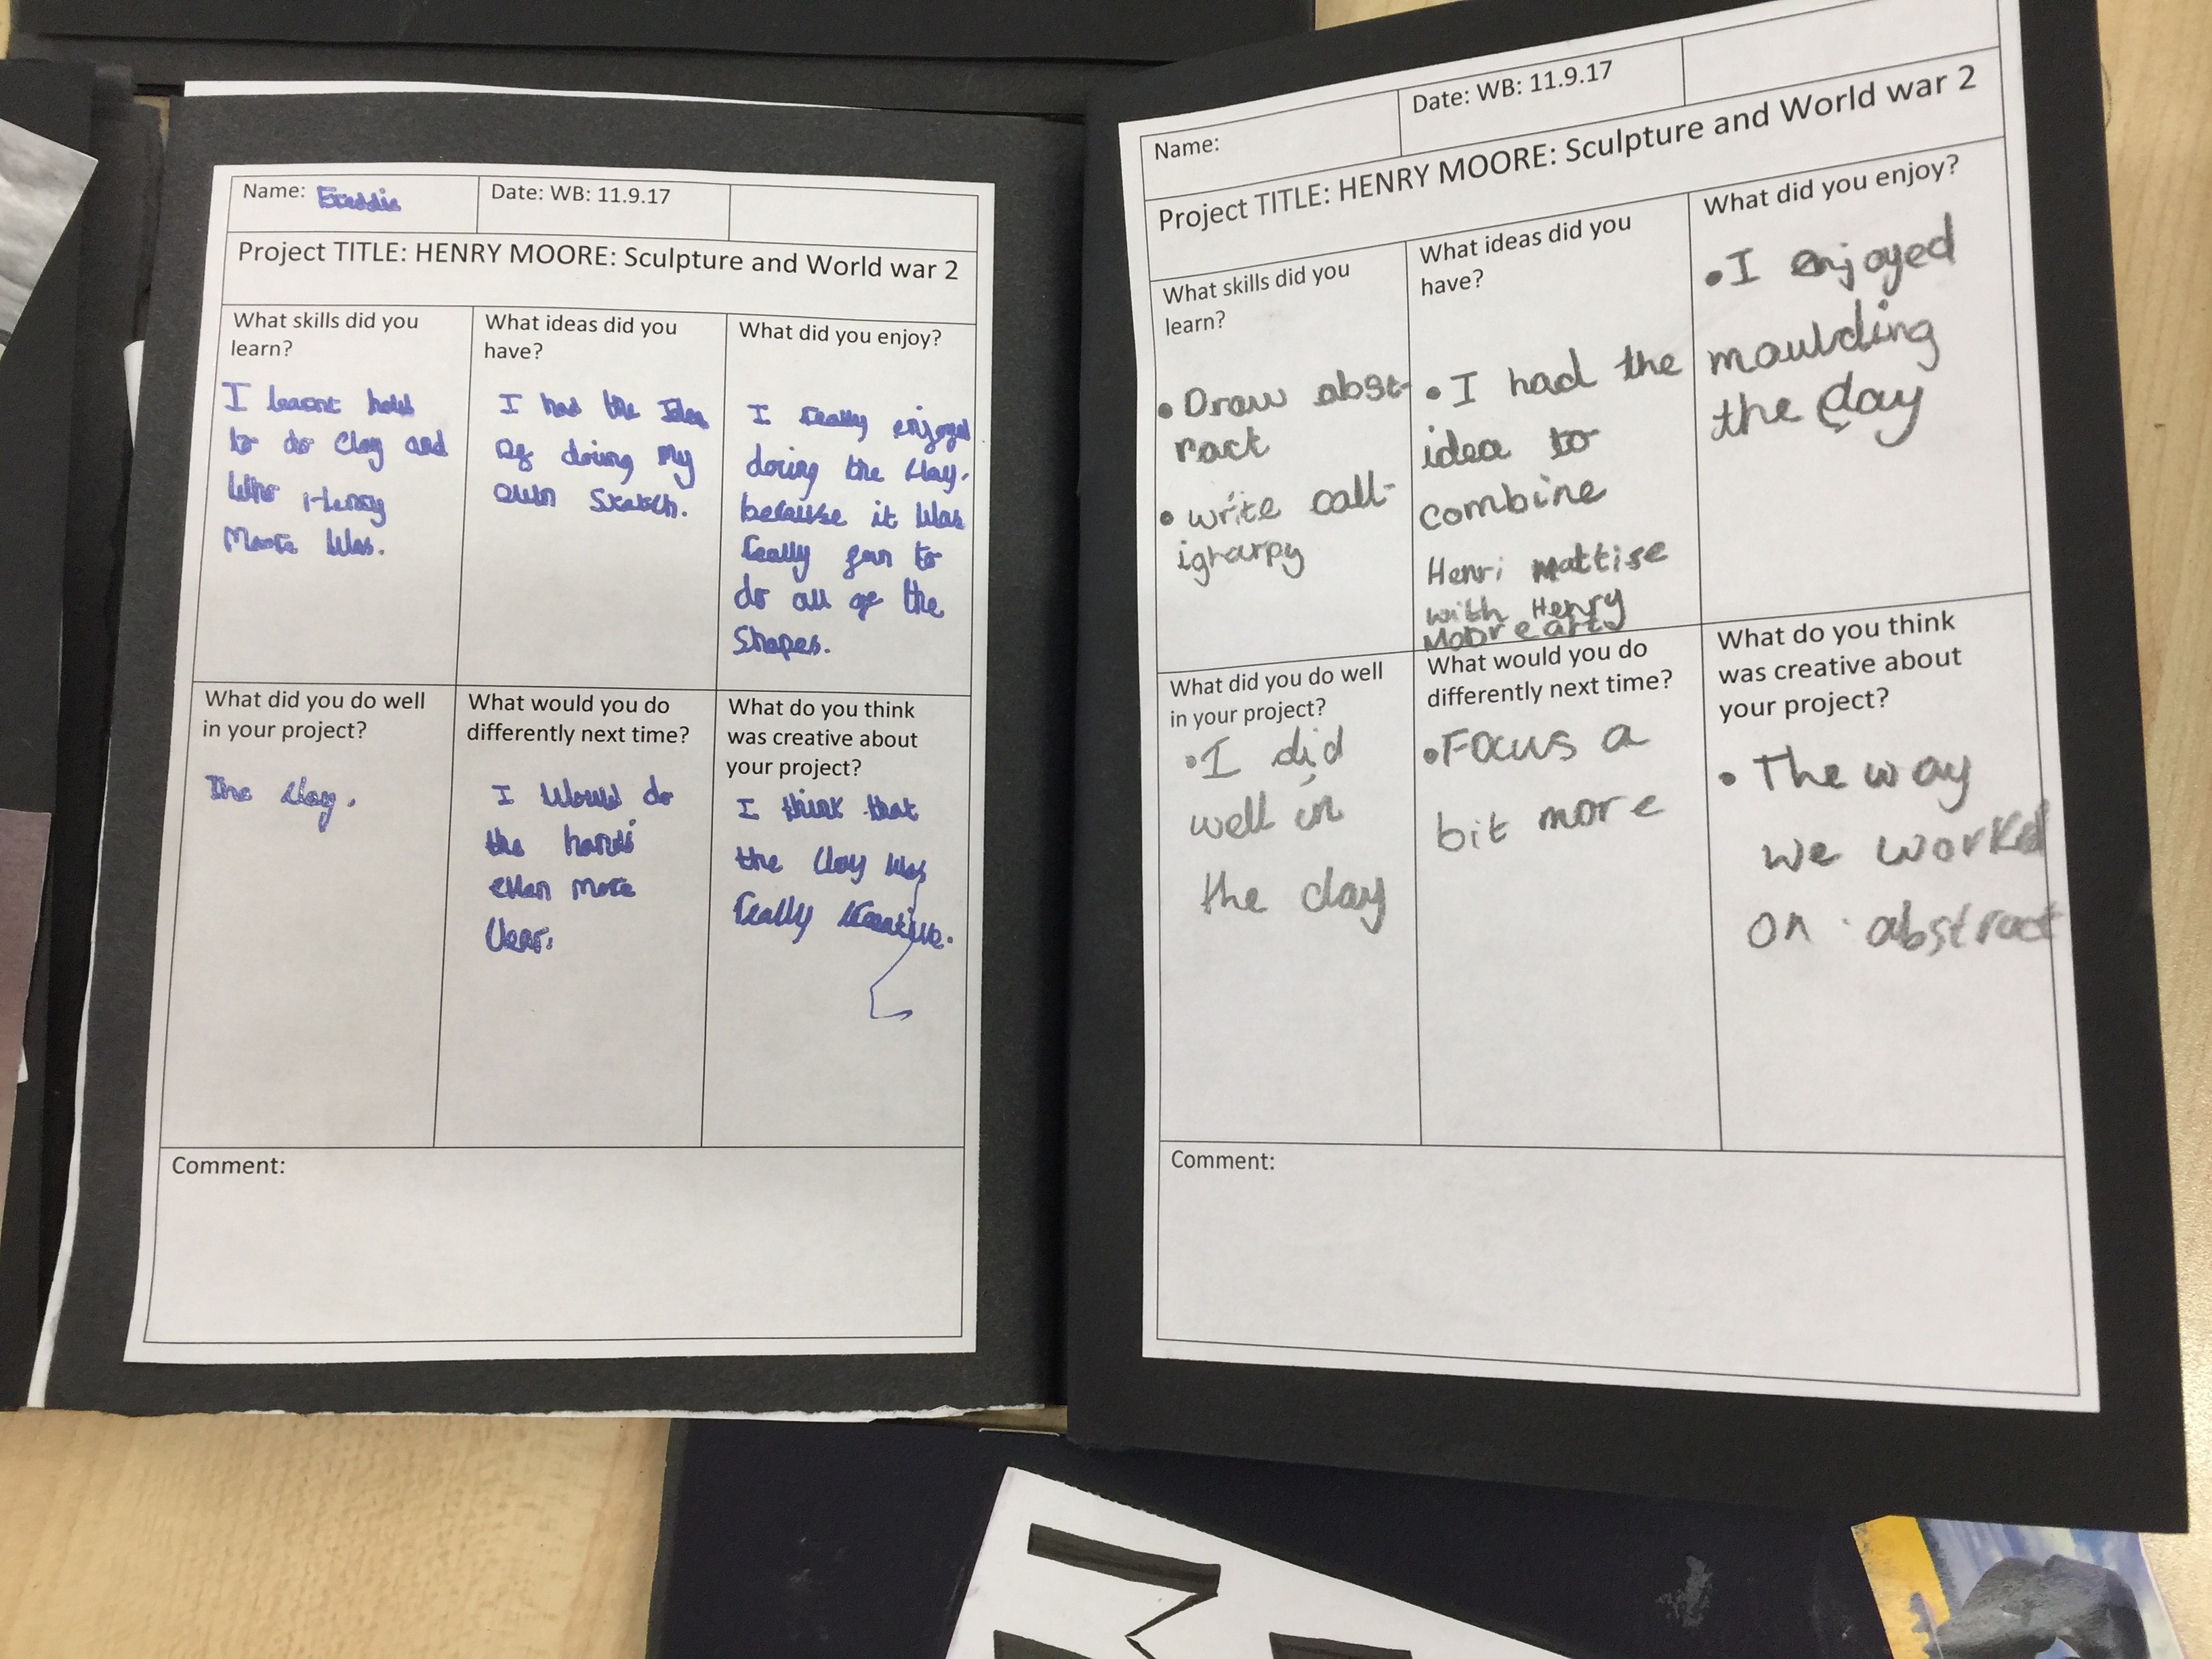 Name: Freddie
Date: WB: 11.9.17
Project TITLE: HENRY MOORE: Sculpture and World war 2
What skills did you
learn?
I learnt how
to do clay and
who Henry
Moore was.
What ideas did you
have?
I had the Idea
of doing my
own Sketch.
What did you enjoy?
I really enjoyed
doing the clay.
because it was
really fun to
do all of the
Shapes.
What did you do well
in your project?
The clay.
What would you do
differently next time?
I would do
the hands
even more
What do you think
was creative about
your project?
I think that
the clay was
really creative.
Comment:
Name:
Date: WB: 11.9.17
Project TITLE: HENRY MOORE: Sculpture and World war 2
What skills did you
learn?
• Draw abst-
ract
• write call-
igharpy
What ideas did you
have?
• I had the
idea to
combine
Henri Mattise
with Henry
Moore art
What did you enjoy?
• I enjoyed
moulding
the clay
What did you do well
in your project?
• I did
well in
the clay
What would you do
differently next time?
• Focus a
bit more
What do you think
was creative about
your project?
• The way
we worked
on abstract
Comment: